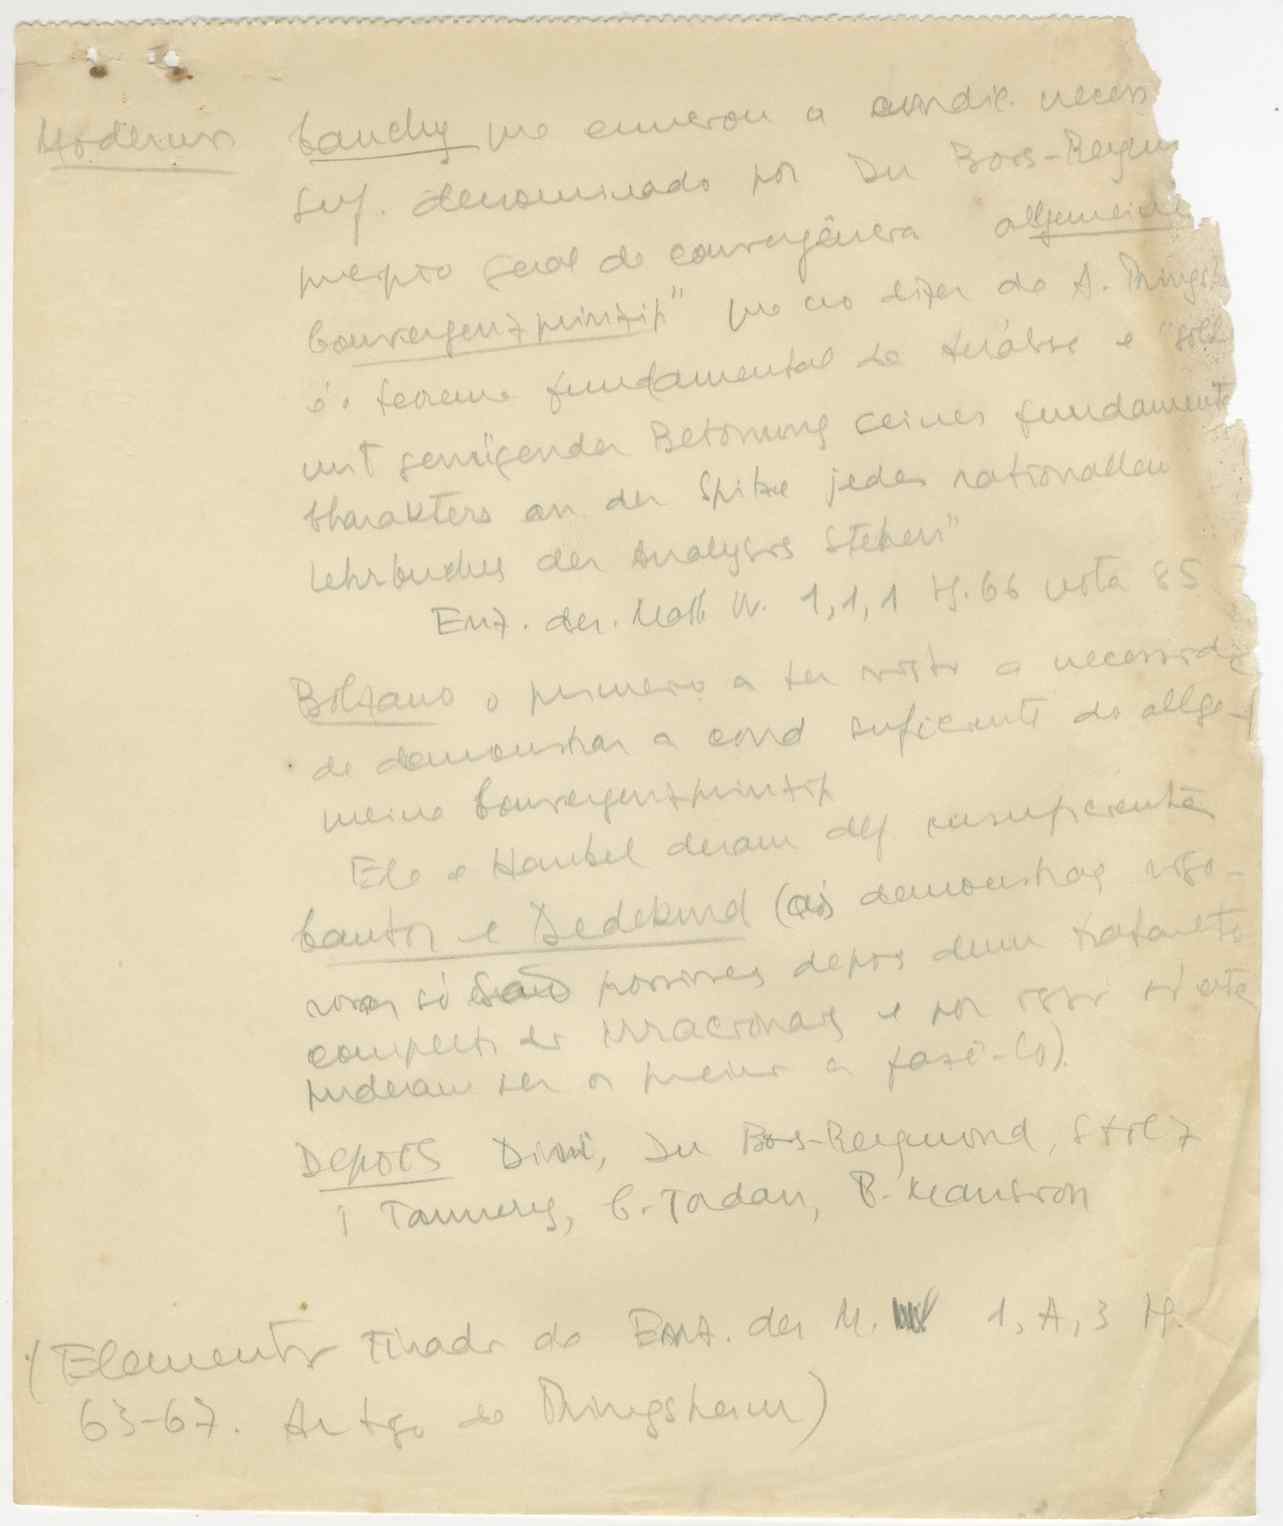 Modernos Cauchy que enumerou a condic. necess
suf. denominado por Du Bois-Reym
principio geral de convergência allgemeine
Convergenzprinzip" que no dizer de A. Pringsh
é o teorema fundamental da Análise e "soll
mit genügender Betonung seines fundamenta
Charakters an der Spitze jedes rationallen
Lehrbuches der Analysis stehen"
Enz. der. Math W. 1,1,1 pg. 66 nota 85
Bolzano o primeiro a ter visto a necessid
de demonstrar a cond suficiente do allge-
meine Convergenzprinzip
Ele e Hankel deram def. insuficientes
Cantor e Dedekind (as demonstraç rigo-
rosas só são possiveis depois dum tratamto
completo dos irracionais e por isso só estes
puderam ser os primeiros a fazê-lo).
Depois Dini, Du Bois-Reymond, Stolz
J Tannery, C. Jordan, P. Mansion
(Elementos tirados da Enz. der M. 1, A, 3 pg.
63-67. Artigo de Pringsheim)